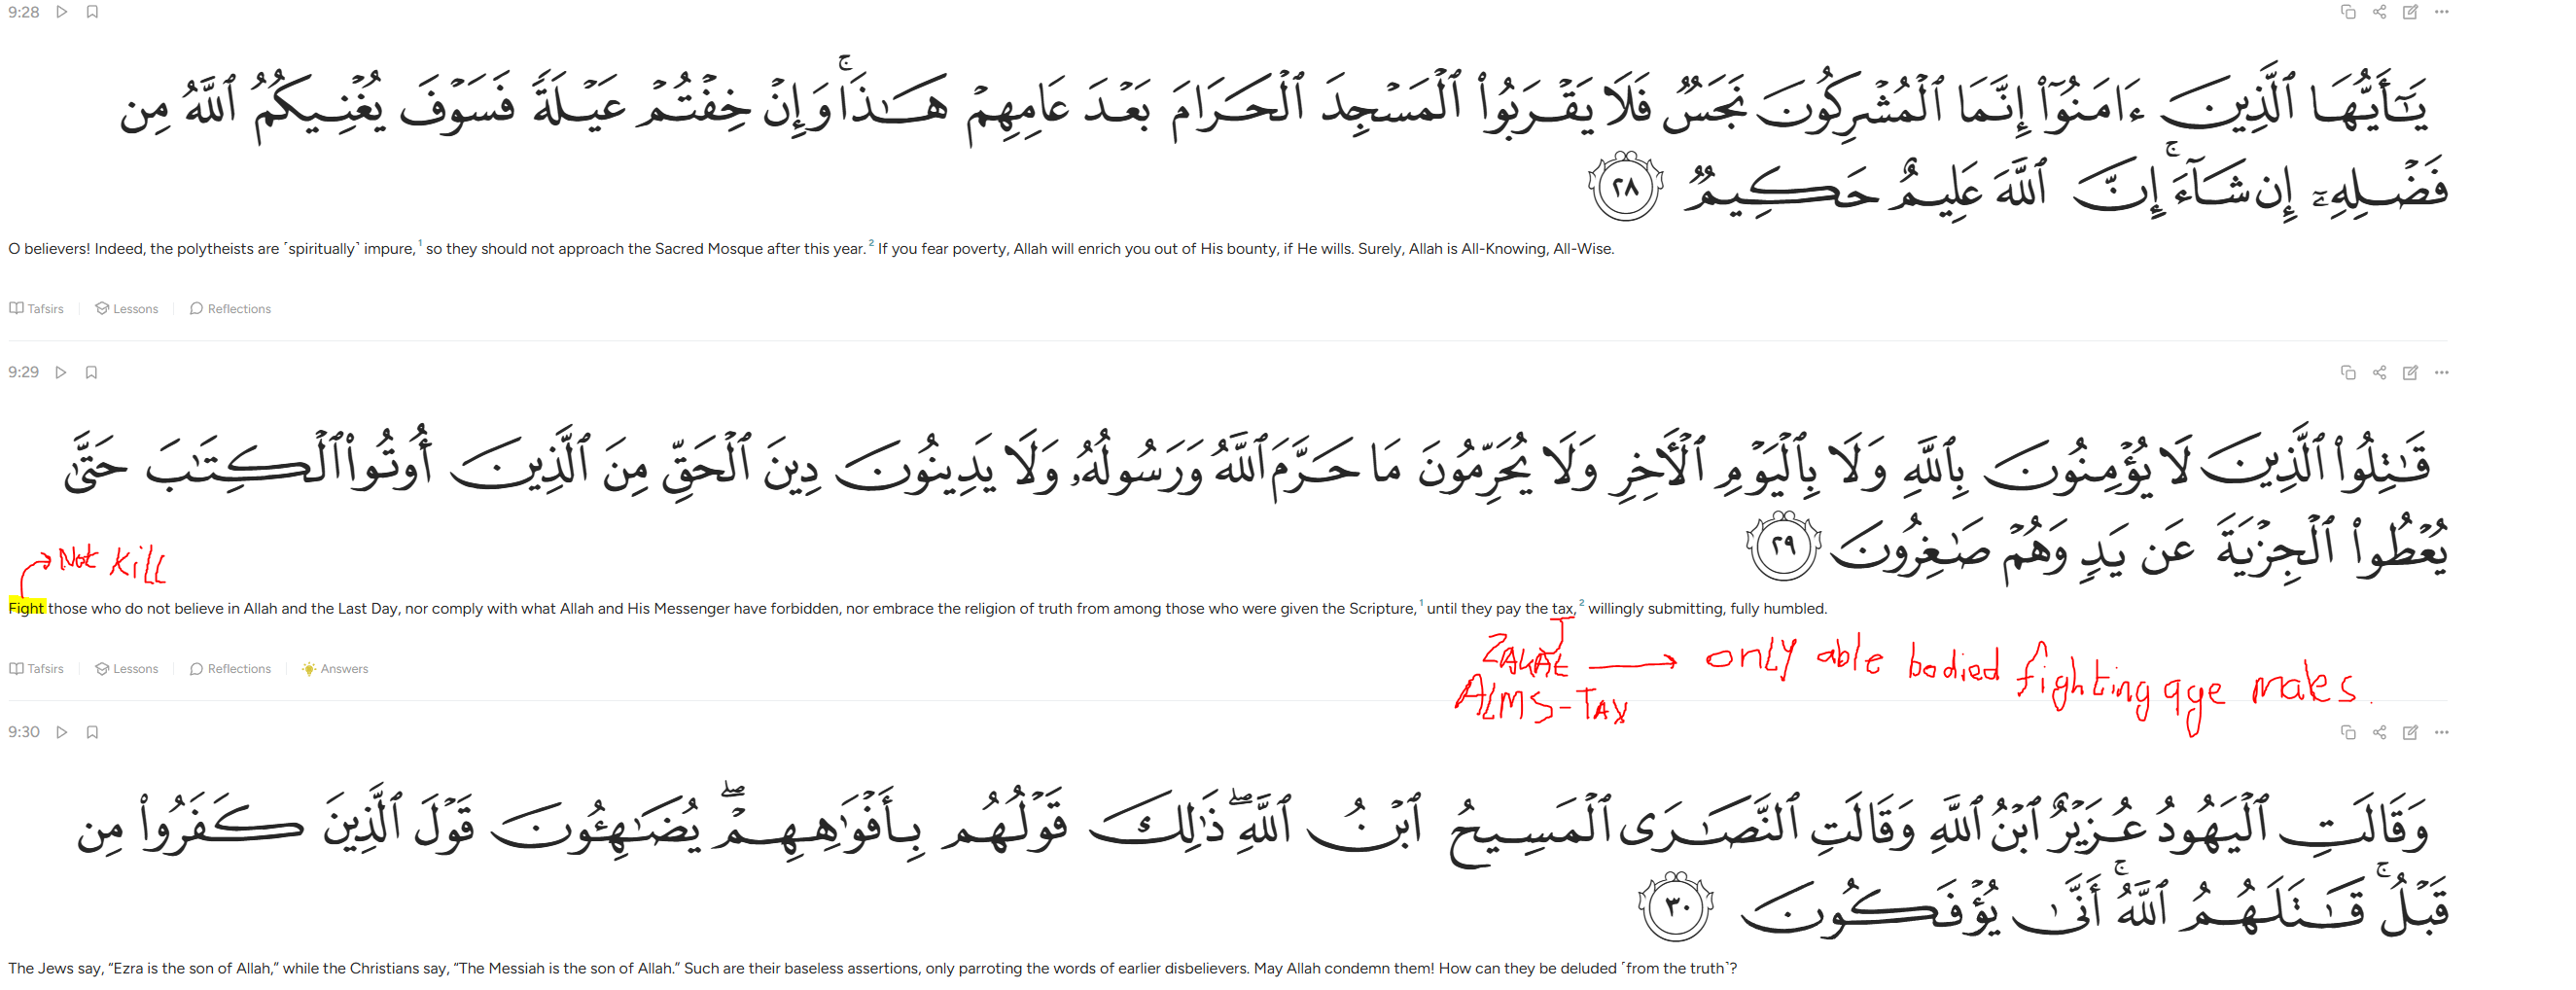 9:28
يَـٰٓأَيُّهَا ٱلَّذِينَ ءَامَنُوٓا۟ إِنَّمَا ٱلْمُشْرِكُونَ نَجَسٌۭ فَلَا يَقْرَبُوا۟ ٱلْمَسْجِدَ ٱلْحَرَامَ بَعْدَ عَامِهِمْ هَـٰذَا ۚ وَإِنْ خِفْتُمْ عَيْلَةًۭ فَسَوْفَ يُغْنِيكُمُ ٱللَّهُ مِن
فَضْلِهِۦٓ إِن شَآءَ ۚ إِنَّ ٱللَّهَ عَلِيمٌ حَكِيمٌۭ ٢٨
O believers! Indeed, the polytheists are ˹spiritually˺ impure,1 so they should not approach the Sacred Mosque after this year.2 If you fear poverty, Allah will enrich you out of His bounty, if He wills. Surely, Allah is All-Knowing, All-Wise.
Tafsirs Lessons Reflections
9:29
قَـٰتِلُوا۟ ٱلَّذِينَ لَا يُؤْمِنُونَ بِٱللَّهِ وَلَا بِٱلْيَوْمِ ٱلْـَٔاخِرِ وَلَا يُحَرِّمُونَ مَا حَرَّمَ ٱللَّهُ وَرَسُولُهُۥ وَلَا يَدِينُونَ دِينَ ٱلْحَقِّ مِنَ ٱلَّذِينَ أُوتُوا۟ ٱلْكِتَـٰبَ حَتَّىٰ
يُعْطُوا۟ ٱلْجِزْيَةَ عَن يَدٍۢ وَهُمْ صَـٰغِرُونَ ٢٩
Not Kill
Fight those who do not believe in Allah and the Last Day, nor comply with what Allah and His Messenger have forbidden, nor embrace the religion of truth from among those who were given the Scripture,1 until they pay the tax,2 willingly submitting, fully humbled.
ZAKAt only able bodied fighting age males.
Tafsirs Lessons Reflections Answers
ALMS-TAX
9:30
وَقَالَتِ ٱلْيَهُودُ عُزَيْرٌ ٱبْنُ ٱللَّهِ وَقَالَتِ ٱلنَّصَـٰرَى ٱلْمَسِيحُ ٱبْنُ ٱللَّهِ ۖ ذَٰلِكَ قَوْلُهُم بِأَفْوَٰهِهِمْ ۖ يُضَـٰهِـُٔونَ قَوْلَ ٱلَّذِينَ كَفَرُوا۟ مِن
قَبْلُ ۚ قَـٰتَلَهُمُ ٱللَّهُ ۚ أَنَّىٰ يُؤْفَكُونَ ٣٠
The Jews say, “Ezra is the son of Allah,” while the Christians say, “The Messiah is the son of Allah.” Such are their baseless assertions, only parroting the words of earlier disbelievers. May Allah condemn them! How can they be deluded ˹from the truth˺?